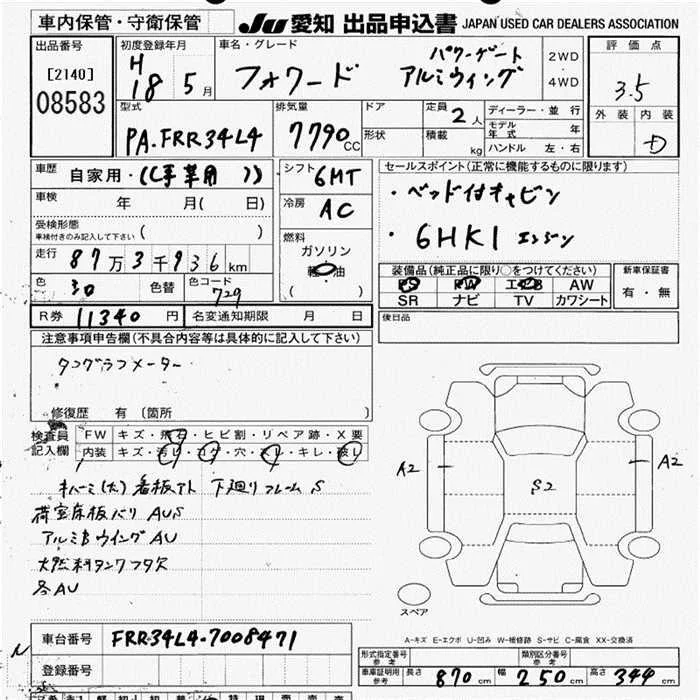 車内保管・守衛保管 JU 愛知 出品申込書 JAPAN USED CAR DEALERS ASSOCIATION
出品番号
[2140]
08583
初度登録年月
H 18 5 月
車名・グレード
フォワード
パワーゲート
アルミウィング
2WD
4WD
評価点
3.5
外装 内装
D
型式
PA.FRR34L4
排気量
7790 CC
ドア
形状
定員 2 人
積載 kg
ディーラー・並行
モデル年式 年
ハンドル 左・右
車歴 自家用・( )
車検 年 月( 日)
受検形態
車検付きのみ記入して下さい ( )
走行 87万3千936km
色 色替 色コード
729
R券 11340 円 名変通知期限 月 日
シフト
6MT
冷房
AC
燃料
ガソリン
軽油
( )
セールスポイント(正常に機能するものに限ります)
・ベッド付キャビン
・6HK1 エンジン
装備品(純正品に限り○をつけてください)
PS PW エアB AW
SR ナビ TV カワシート
新車保証書
有・無
後日品
注意事項申告欄(不具合内容等は具体的に記入して下さい)
タコグラフメーター
修復歴 有 (箇所 )
検査員記入欄
FW キズ・飛石・ヒビ割・リペア跡・X要
内装 キズ・汚レ・コゲ・穴・スレ・キレ・破レ
下廻りフレーム S
荷室床板バリ AUS
アルミBウイングAU
大燃料タンクフタ欠
各AU
A2
S2
A2
スペア
A-キズ E-エクボ U-凹み W-補修跡 S-サビ C-腐食 XX-交換済
車台番号 FRR34L4-7008471
登録番号
形式指定番号 参考
類別区分番号 参考
車庫証明用 参考 長さ 870 cm 幅 250 cm 高さ 344 cm